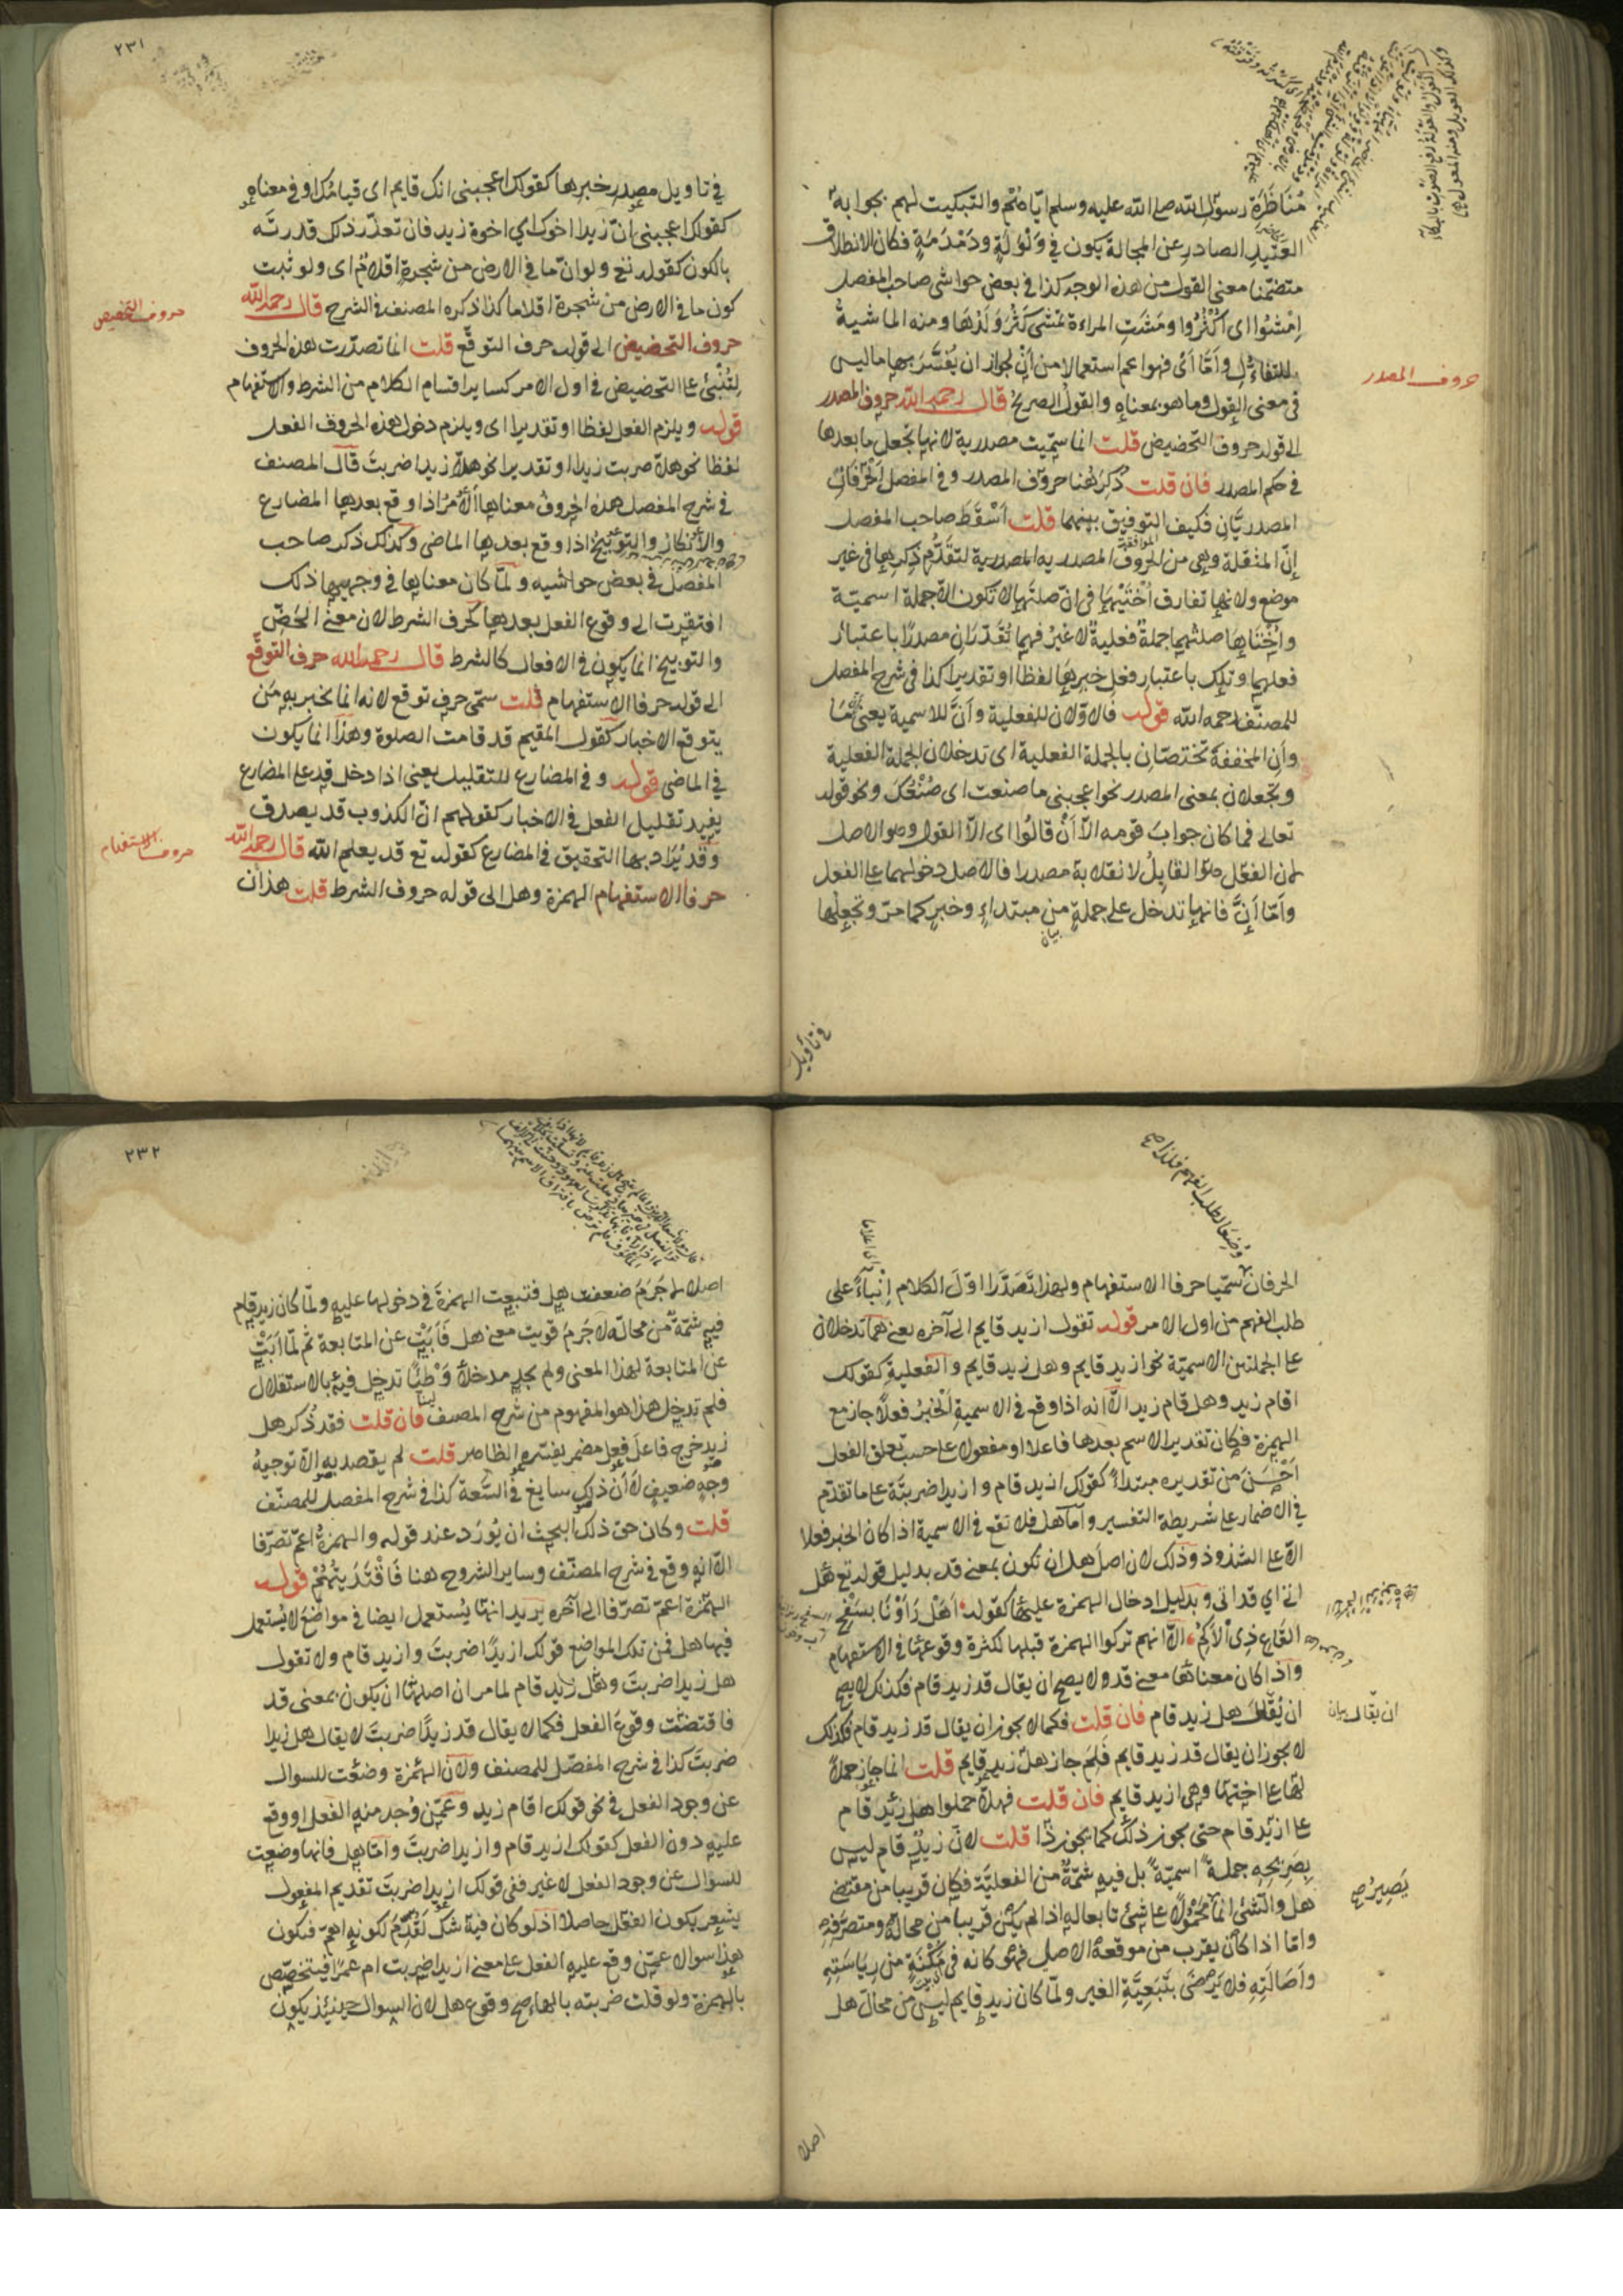 مُنَاظَرَةِ رسول الله صلى الله عليه وسلم اياه ثم والتبكيت لهم بجوابه
العَتِيدِ الصادرِ عن المجالة يكون في وَلْوَلَةٍ ودَمْدَمَةٍ فكان الانطلاق
متضمنا معنى القول من هذه الوجه كذا في بعض حواشى صاحب المفصل
اِمْشُوا اى اكْثُرُوا ومَشَتِ المراءة تمشى كَثُرَ وَلَدُهَا ومنه الماشية
للتفاءُل وأمّا أىْ فهو اعم استعمالا من اَنْ لجواز ان يُفَسَّرَ بها ما ليس
فى معنى القول وما هو بمعناه والقولُ الصريحُ قال رحمه الله حروف المصدر
حروف المصدر
الى قوله حروف التحضيض قلت انما سمّيت مصدرية لانها تجعل ما بعدها
فى حكم المصدر فان قلت ذُكِرَ هُنا حروف المصدر وفى المفصل الحرفان
المصدريَّانِ فكيف التوفيق بينهما قلت اَسْقَطَ صاحب المفصل
اِنّ المثقلة وهى من الحروف المصدريه المصدرية لتقَدُّم ذِكرِها فى غير
موضع ولانها تفارق اُخْتَيْهَا فى انّ صلتها لا تكون الا جملة اسميّة
واُخْتَاهَا صلتُهما جملةٌ فعليةٌ لا غيرُ فهما تُقَدَّرَانِ مصدرًا باعتبار
فعلهما وتلك باعتبار فعل خبرِهَا لفظا او تقديرا كذا فى شرح المفصل
للمصنّف رحمه الله قوله فالاوّلان للفعلية واَنَّ للاسمية يعنى مَا
واَن المخففة تختصّان بالجملة الفعلية اى تدخلان الجملة الفعلية
وتجعلان بمعنى المصدر نحو اعجبنى ما صنعت اى صُنْعُكَ ونحو قوله
تعالى فما كان جوابَ قومه الّا اَنْ قالُوا اى الّا القول وهو الاصل
لان الفعل هو القابِلُ لانقلابه مصدرا فالاصل دخولهما على الفعل
وأمّا اَنَّ فانها تدخل على جملةٍ من مبتداءٍ وخبرٍ كما مرّ وتجعلها
بيان
فى تاويل
٢٣١
فى تاويل مصدرِ خبرِها كقولك اعجبنى انك قايم اى قيامُك او فى معناه
كقولك اعجبنى انّ زيدا اخوك اي اخوة زيد فان تعذّر ذلك قدرته
بالكون كقوله تع ولو انّ ما فى الارض من شجرةٍ اقلامٌ اى ولو ثبت
كون ما فى الارض من شجرة اقلاما كذا ذكره المصنف فى الشرح قال رحمه الله
حروف التحضيض
حروف التحضيض الى قوله حرف التوقّع قلت انما تصدّرت هذه الحروف
لِتُنْبئَ على التحضيض فى اول الامر كساير اقسام الكلام من الشرط والاستفهام
قوله ويلزم الفعل لفظا او تقديرا اى ويلزم دخول هذه الحروف الفعل
لفظا نحو هلّا ضربت زيدا او تقديرا نحو هلّا زيدا ضربتَ قال المصنف
فى شرح المفصل هذه الحروفُ معناها الامرُ اذا وقع بعدها المضارع
والانكار والتوبيخُ اذا وقع بعدها الماضى وكذلك ذكر صاحب
المفصل فى بعض حواشيه ولمّا كان معناها فى وجهيها ذلك
افتقرت الى وقوع الفعل بعدها كحرف الشرط لان معنى الحَضّ
والتوبيخ انما يكون فى الافعال كالشرط قال رحمه الله حرف التوقّع
الى قوله حرفا الاستفهام قلت سمّى حرف توقع لانه انما يخبر به مَن
يتوقع الاخبار كقول المقيم قد قامت الصلوة وهذا انما يكون
فى الماضى قوله وفى المضارع للتقليل يعنى اذا دخل قد على المضارع
يفيد تقليل الفعل فى الاخبار كقولهم انّ الكذوب قد يصدق
وقد يُرَاد بها التحقيق فى المضارع كقوله تع قد يعلم الله قال رحمه الله
حروف الاستفهام
حرفا الاستفهام الهمزة وهل الى قوله حروف الشرط قلت هذان
وُضِعَا لطلب الفهم فلذا صح
الحرفان سُمّيا حرفا الاستفهام ولهذا تَصَدَّرَا اوّلَ الكلام اِنْباءً على
طلب الفهم من اول الامر قوله تقول ازيد قايم الى آخره يعنى هما تدخلان
على الجملتين الاسميّة نحو ازيد قايم وهل زيد قايم والفعليةِ كقولك
اقام زيد وهل قام زيد الّا انه اذا وقع فى الاسميةِ الْخبرُ فعلًا جاز مع
الهمزة فكان تقدير الاسم بعدها فاعلا او مفعولا على حسب تعلق الفعل
اَحْسَنَ من تقديره مبتدأً كقولك ازيد قام وازيدا ضربتَه على ما تقدّم
فى الاضمار على شريطة التفسير وأما هل فلا تقع فى الاسمية اذا كان الخبر فعلا
الّا على الشذوذ وذلك لان اصلَ هل ان تكون بمعنى قد بدليل قوله تع هل
اتى اي قد اتى وبدليل ادخال الهمزة عليها كقوله اَهَلْ رَاَوْنَا بسَفْحِ
القاعِ ذِى الْاَكَمِ الّا انهم تركوا الهمزة قبلها لكثرة وقوعها فى الاستفهام
واذا كان معناها معنى قد ولا يصح ان يقال قد زيد قام فكذلك لا يصح
ان يُقال هل زيد قام فان قلت فكما لا يجوز ان يقال قد زيد قام فكذلك
ان يقال بيان
لا يجوز ان يقال قد زيد قايم فَلِمَ جاز هل زيد قايم قلت انما جاز حملًا
لها على اختها وهى ازيد قايم فان قلت فهلّا حملوا هل زيد قام
على ازيد قام حتى يجوز ذلك كما يجوز ذا قلت لان زيد قام ليس
بِصَرِيْحِهِ جملةً اسميّةً بل فيه شمّةٌ من الفعليّة فكان قريبا من مقتضى
يَصِيرُ صح
هل والشئ انما مَحْمُولًا على شئ تابعا له اذا لم يكن قريبا من محاله ومتصرَّفِهِ
وامّا اذا كان يقرب من موقعه الاصلى فهو كانه فى مَكِنَةٍ من رِيَاسَتِهِ
واَصَالَتِهِ فلا يَرضَى بتَبَعيَّةِ الغير ولمّا كان زيد قايم ليس من محال هل
اصلا
٢٣٢
اصلا لا جَرَمَ ضعفت هل فتبعت الهمزةَ فى دخولها عليه ولمّا كان زيد قام
فيه شمّةٌ من محالّه لا جَرمَ قويت معنى هل فَاَبَتْ عن المتابعة ثم لمّا اَبَتْ
عن المتابعة لهذا المعنى ولم يجد مدخلًا وَطِيًّا تدخل فيه بالاستقلال
فلم تدخل هذا هو المفهوم من شرح المصنف فان قلت فقد ذُكر هل
زيد خرج فاعلَ فعلٍ مضمرٍ يفسّره الظاهر قلت لم يقصد به الّا توجيهُ
وجهٍ ضعيفٍ لا اَنّ ذلك سايغ فى السَّعة كذا فى شرح المفصل للمصنّف
قلت وكان حق ذلك البحث ان يُورَد عند قوله والهمزةُ اعمّ تصرّفا
الا انه وقع فى شرح المصنّف وساير الشروح هنا فَاقْتَدَيتُهُمْ قوله
الهمزة اعمّ تصرّفا الى آخره يريد انها يُستعمل ايضا فى مواضعَ لا يُستعمل
فيها هل فمن تلك المواضع قولك ازيدًا ضربتَ وازيد قام ولا تقول
هل زيدا ضربتَ وهل زيد قام لما مر ان اصلها ان يكون بمعنى قد
فاقتضت وقوعَ الفعل فكما لا يقال قد زيدًا ضربتَ لا يقال هل زيدا
ضربتَ كذا فى شرح المفصّل للمصنف ولان الهمزة وضعت للسوال
عن وجود الفعل فى نحو قولك اقام زيد وعمّن وُجد منه الفعل او وقع
عليه دون الفعل كقولك ازيد قام وازيدا ضربتَ وامّا هل فانها وضعت
للسوال عن وجود الفعل لا غير ففى قولك ازيدا ضربتَ تقديم المفعول
يشعر بكون الفعل حاصلا اذ لو كان فيه شك لَقُدِّمَ لكونه اهمّ فيكون
هذا سوالا عمّن وقع عليه الفعل على معنى ازيدا ضربت ام عمرًا فيتخصّص
بالهمزة ولو قلت ضربته بالهاء صح وقوع هل لان السوال حينئذ يكون